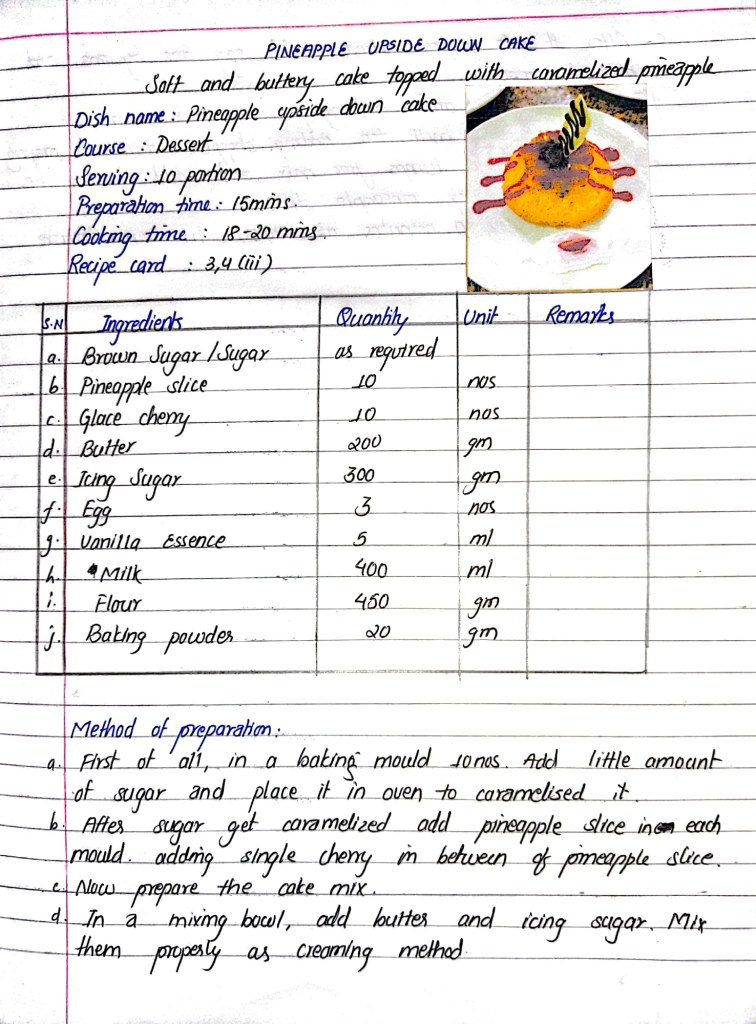 PINEAPPLE UPSIDE DOWN CAKE
Soft and buttery cake topped with caramelized pineapple
Dish name : Pineapple upside down cake
Course : Dessert
Serving : 10 portion
Preparation time : 15mins.
Cooking time : 18-20 mins.
Recipe card : 3,4 (iii)
S.N Ingredients Quantity Unit Remarks
a. Brown Sugar / Sugar as required
b. Pineapple slice 10 nos
c. Glace cherry 10 nos
d. Butter 200 gm
e. Icing Sugar 300 gm
f. Egg 3 nos
g. Vanilla Essence 5 ml
h. Milk 400 ml
i. Flour 450 gm
j. Baking powder 20 gm
Method of preparation:
a. First of all, in a baking mould 10nos. Add little amount
of sugar and place it in oven to caramelised it.
b. After sugar get caramelized add pineapple slice in each
mould. adding single cherry in between of pineapple slice.
c. Now prepare the cake mix.
d. In a mixing bowl, add butter and icing sugar. Mix
them properly as creaming method.